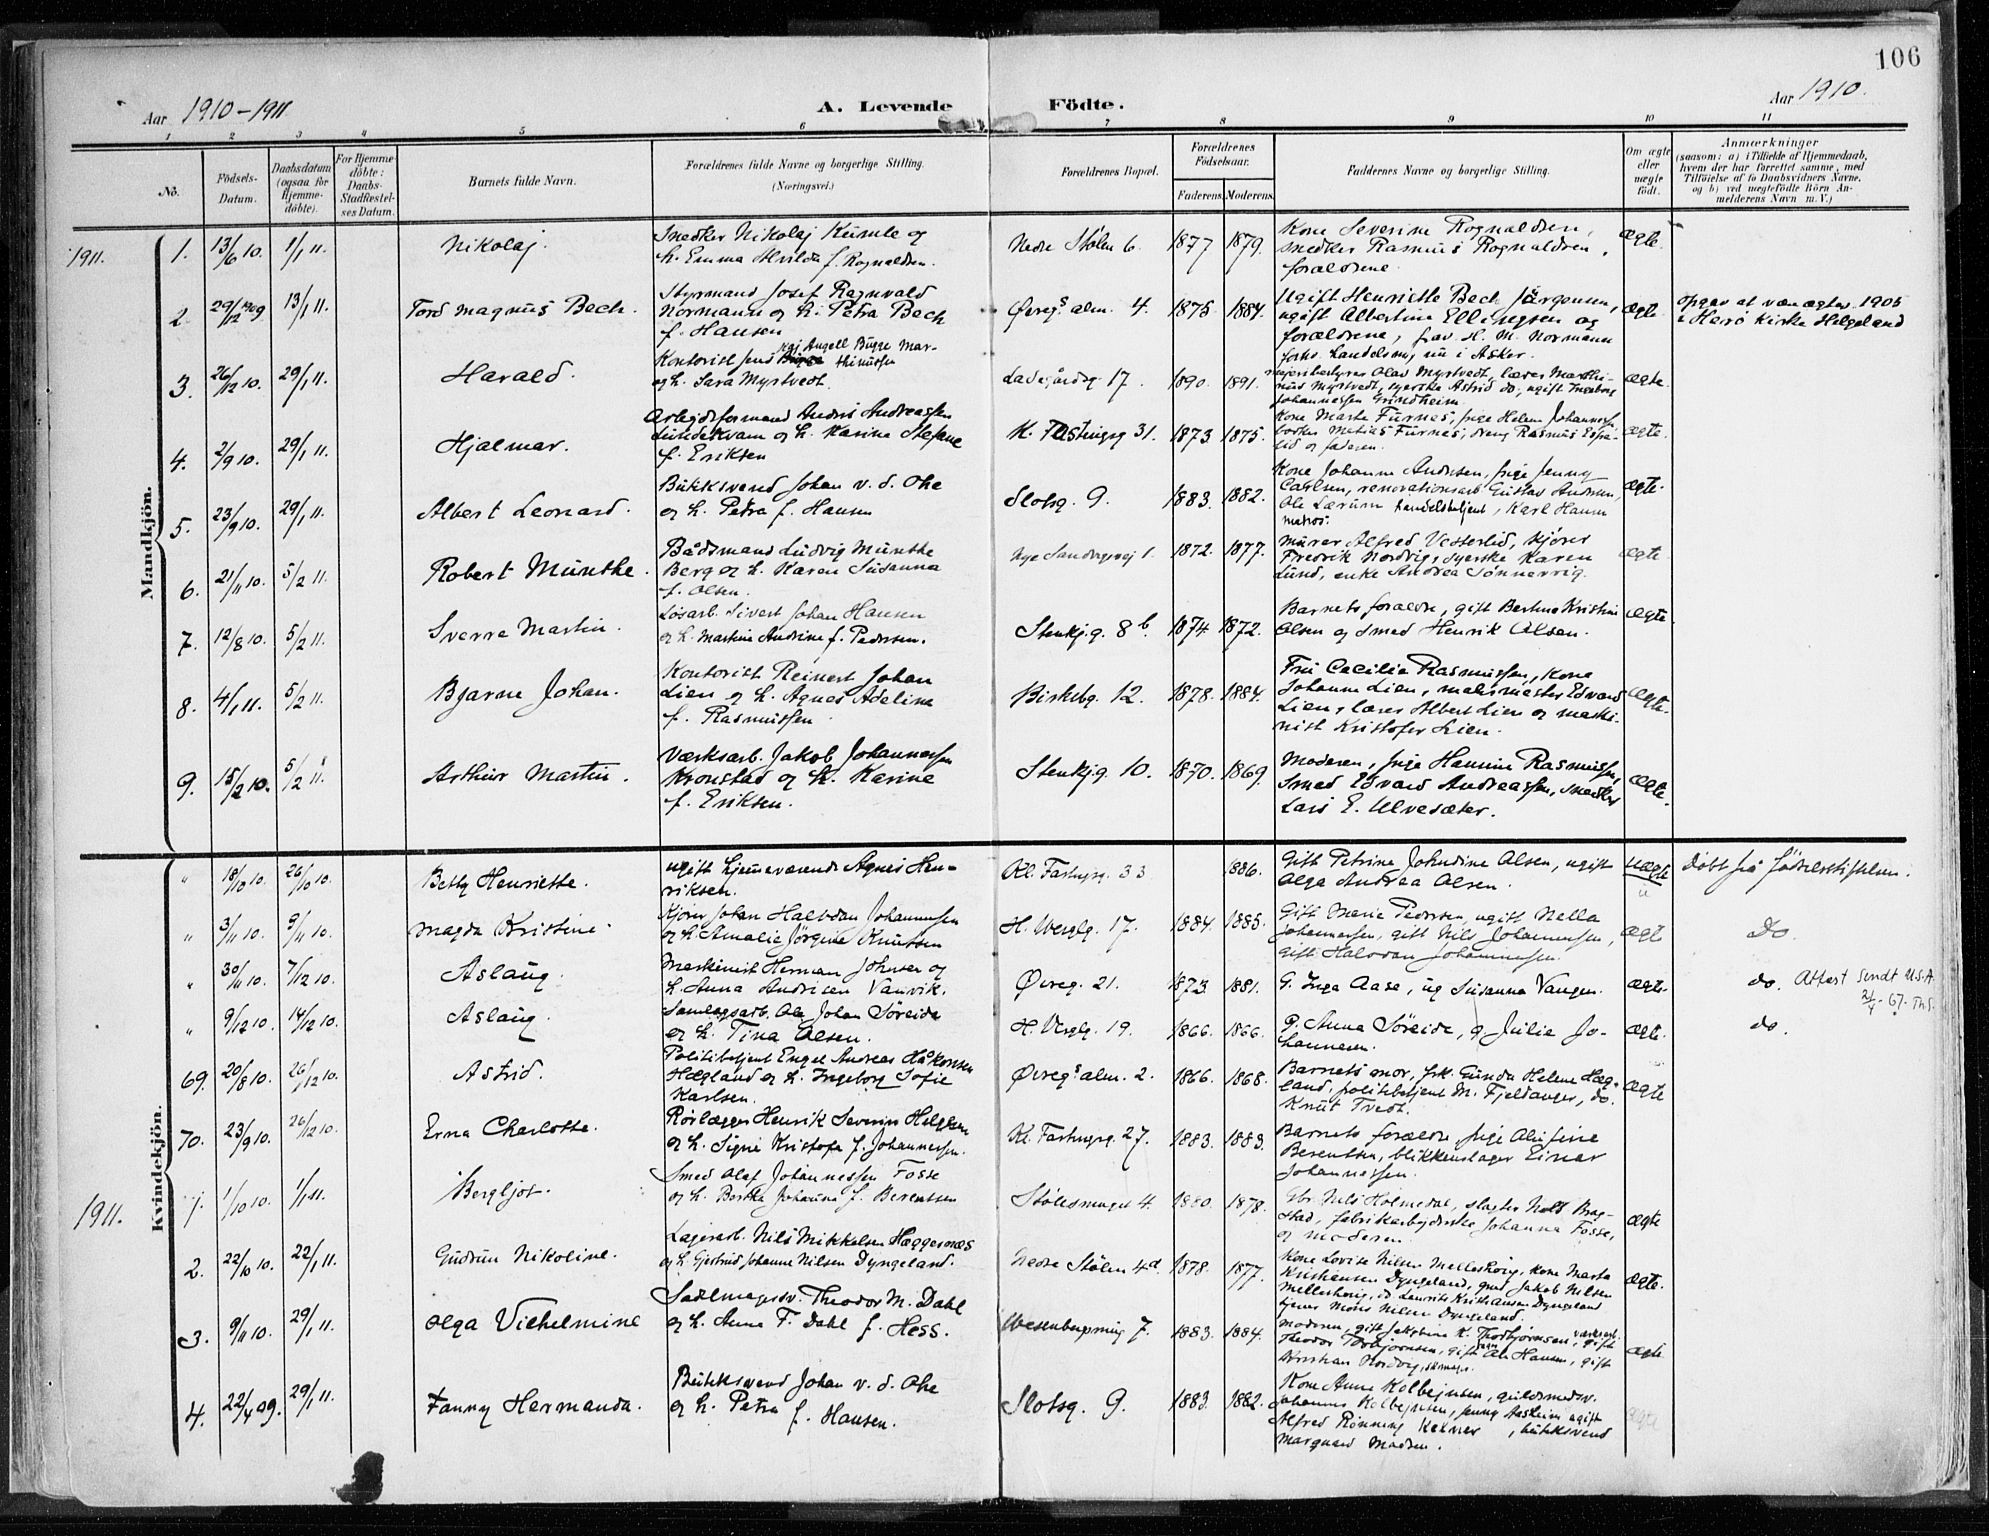 106
Aar 1910-1911
A. Levende Födte.
Aar 1910.
1 2 3 4 5 6 7 8 9 10 11
No.
Födsels-Datum.
Daabsdatum (ogsaa for Hjemme-döbte).
For Hjemme-döbte: Daabs-Stadfæstel-ses Datum.
Barnets fulde Navn.
Forældrenes fulde Navne og borgerlige Stilling. (Næringsvei.)
Forældrenes Bopæl.
Forældrenes Födselsaar.
Faderens. Moderens.
Faddernes Navne og borgerlig Stilling.
Om ægte eller uægte födt.
Anmærkninger
(saasom: a) i Tilfælde af Hjemmedaab,
hvem der har forrettet samme, med
Tilföielse af to Daabsvidners Navne,
og b) ved uægtefödte Börn An-
melderens Navn m. V.)
Mandkjön.
1911. 1. 13/6 10. 1/1 11. Nikolaj.
Snedker Nikolaj Kumle og
h. Emma Hulda f. Rognaldsen.
Nedre Stølen 6. 1877 1879.
Kone Severine Rognaldsen,
snedker Rasmus Rognaldsen,
forældrene.
ægte.
2. 29/12 1909 13/1 11. Tord Magnus Bech.
Styrmand Josef Ragnvald
Normann og h. Petra Bech
f. Hansen
Øvregs alm. 4. 1875 1884.
Ugift Henriette Bech Jörgensen,
ugift Albertine Ellingsen og
forældrene, frav. H. M. Normann
forhv. handelsm, nu i Asker.
ægte.
opgav at være ægtev. 1905
i Herö Kirke Helgeland
3. 26/12 10. 29/1 11. Harald.
Kontorist Jens Angell Bugge Mar-
thinussen
og h. Sara Myrtvedt.
Ladegårdsg 17. 1890. 1891.
Olav Myrtvedt, lærer Marthi-
nus Myrtvedt, syerske Astrid do, ugift Ingeborg
Johannessen Grindheim.
ægte.
4. 2/9 10. 29/1 11. Hjalmar.
Arbejdsformand Andris Andreassen
Lundekvam og h. Karine Stefane
f. Eriksen
K. Fastingsg 31. 1873. 1875.
Kone Marta Furnes, pige Helene Johannessen
Matias Furnes, dreng Rasmus
og faderen.
ægte.
5. 23/9 10. 29/1 11. Albert Leonard.
Butiksvend Johan v. d. Ohe
og h. Petra f. Hansen
Slotsg. 9. 1883. 1882.
Kone Johanne Andersen, pige Jenny
Carlsen, renovationsarb. Gustav Andersen,
Ole Lærum handelsbetjent, Karl Hansen
matros.
ægte.
6. 21/11 10. 5/2 11. Robert Munthe.
Bådsmand Ludvig Munthe
Berg og h. Karen Susanna
f. Olsen.
Nye Sandvigsvej 1. 1872. 1877.
Murer Alfred Vesterlid, kjører
Fredrik Nordvig, syerske Karen
Lund, enke Andrea Sönnervig.
ægte
7. 12/8 10. 5/2 11. Sverre Martin.
Løsarb. Sivert Johan Hansen
og h. Martine Andrine f. Pedersen.
Stenkj.g. 8b. 1874. 1872.
Barnets forældre, gift Bertine Kristine
Olsen og smed Henrik Olsen.
ægte.
8. 4/1 11. 5/2 11. Bjarne Johan.
Kontorist Reinert Johan
Lien og h. Agnes Adelina
f. Rasmussen
Birkebg. 12. 1878. 1884.
Fru Cecilie Rasmussen, Kone
Johanne Lien, malermester Edvard
Lien, lærer Albert Lien og maski-
nist Kristofer Lien.
ægte.
9. 15/2 10. 5/2 11. Arthur Martin.
Værksarb. Jakob Johannessen
Kronstad og h. Karine
f. Eriksen.
Stenkj.g 10. 1870. 1869.
Moderen, pige Hannine Rasmussen,
Smed Edvard Andreassen, snedker
Lars E. Ulvesæter.
ægte.
Kvindekjön.
" 18/10 10. 26/10 10. Betty Henriette.
ugift hjemmeværende Agnes Hen-
riksen.
Kl. Fastingsg. 33 1886.
Gift Petrine Johndine Olsen, ugift
Olga Andrea Olsen.
uægte
Døbt på Fødselsstiftelsen.
" 3/11 10. 9/11 10. Magda Kristine.
Kjører Johan Halvdan Johannessen
og h. Amalie Jørgine Knutsen
H. Wergelg. 17. 1884. 1885.
Gift Marie Pedersen, ugift Nella
Johannessen, gift Nils Johannessen,
gift Halvdan Johannessen.
ægte
Do.
" 30/11 10. 7/12 10. Aslaug.
Maskinist Herman Johnsen og
h. Anna Andrisen Vamvik.
Øvreg. 21. 1873. 1881.
G. Inga Aase, ug Susanna Vangen.
ægte.
do. Attest sendt U.S.A.
2/4-67. Th.S.
" 9/12 10. 14/12 10. Aslaug.
Samlagsarb. Ole Johan Söreide
og h. Tina Olsen.
H. Wergelg. 19. 1866. 1866.
g. Anna Söreide, g. Julie Jo-
hannesen.
ægte.
do.
69. 20/8 10. 26/12 10. Astrid.
Politibetjent Engel Andreas Håkonsen
Hægland og h. Ingeborg Sofie
Karlsen.
Øvregs alm. 2. 1866. 1868.
Barnets mor, frk. Gunda Helene Hæg-
land, politibetjent M. Fjeldanger, do.
Knut Tvedt.
ægte
70. 23/9 10. 26/12 10. Erna Charlotte.
Rørlægger Henrik Severin Helgesen
og h. Signe Kristofa f. Johannessen.
Kl. Fastingsg. 27. 1883. 1883.
Barnets forældre, pige Alufine
Berentsen, blikkenslager Einar
Johannessen.
1911. 1. 1/10 10. 1/1 11. Bergljot.
Smed Olaf Johannessen Fosse
og h. Berta Johanna f. Berentsen
Stølesmuget 4. 1880. 1878.
Gbr. Nils Holmedal, slagter Nils Brag-
stad, fabrikarbejderske Johanna Fosse,
og moderen.
ægte
2. 22/10 10. 22/1 11. Gudrun Nikoline.
Lagerarb. Nils Mikkelsen Hæggernæs
og h. Gjertrud Johanne Nilsen Dyngeland.
Nedre Stølen 4d. 1878. 1877.
Kone Lovise Nilsen Mellesborg, Kone Marta
Kristiansen Dyngeland, gmd Jakob Nilsen
Mellesborg, do Laurits Kristiansen Dyngeland
tjener Mons Nilsen Dyngeland.
ægte.
3. 9/11 10. 29/1 11. Olga Vilhelmine
Sadelmagersv. Theodor M. Dahl
og h. Anna F. Dahl f. Hess.
Wesenbergsmug 7. 1883. 1884.
Moderen, gift Jakobine K. Thorbjørnsen, værksarb.
Theodor Thorbjørnsen, gift Ole Hansen, gift
Kristian Nordvig, skomager.
ægte
4. 22/4 09. 29/1 11. Fanny Hermanda.
Butiksvend Johan v. d. Ohe
og h. Petra f. Hansen.
Slotsg. 9. 1883. 1882.
Kone Anna Kolbejnsen, guldsmedsv.
Johannes Kolbejnsen, Jenny Aasheim ugift
Alfred Rönning Kelner, butiksvend
Marquard Madsen.
ægte